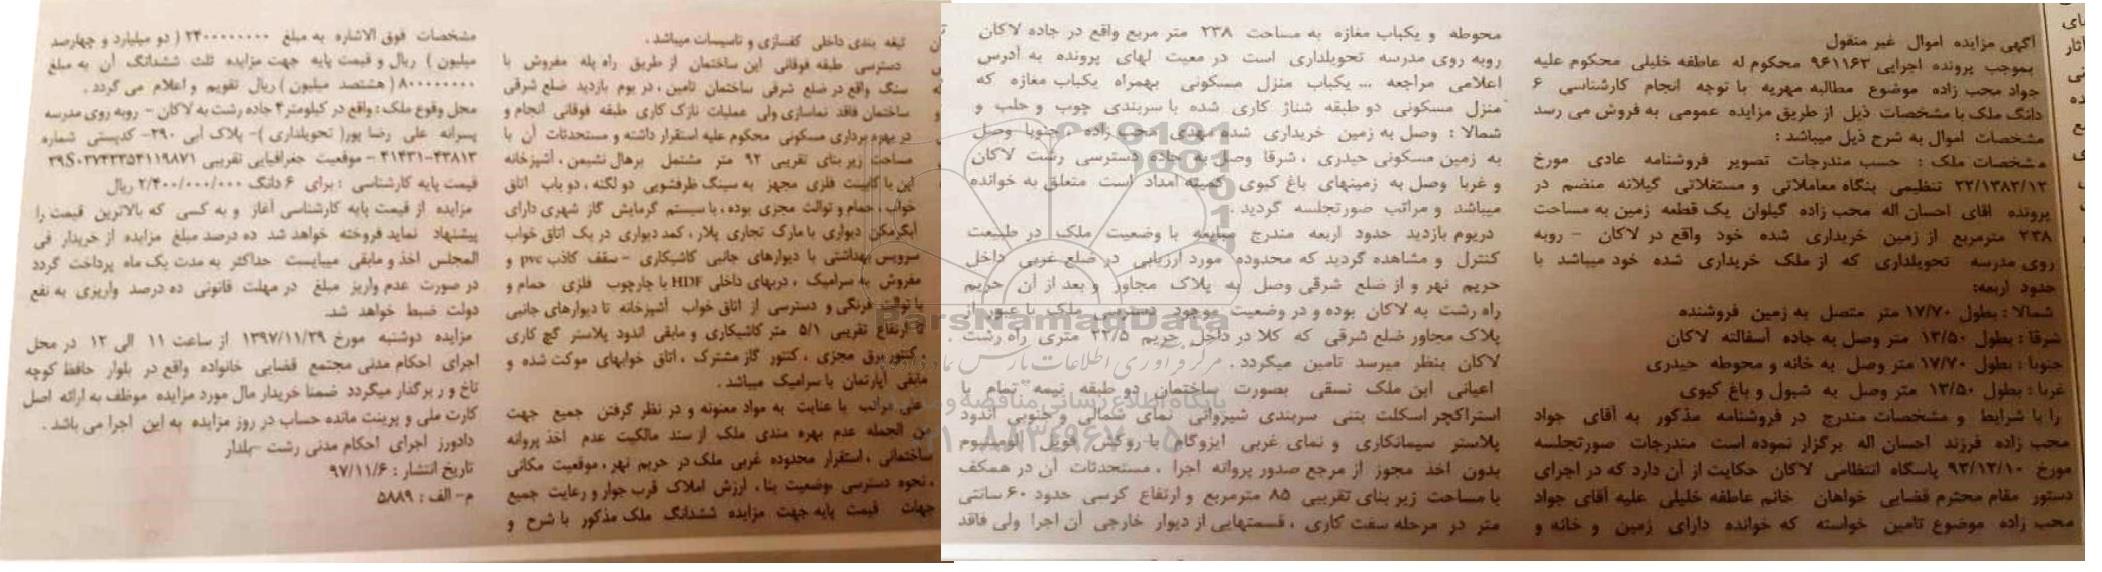 آگهی مزایده اموال غیر منقول
بموجب پرونده اجرایی ۹۶۱۱۶۳ محکوم له عاطفه خلیلی محکوم علیه
جواد محب زاده موضوع مطالبه مهریه با توجه انجام کارشناسی ۶
دانگ ملک با مشخصات ذیل از طریق مزایده عمومی به فروش می رسد
مشخصات اموال به شرح ذیل میباشد :
مشخصات ملک : حسب مندرجات تصویر فروشنامه عادی مورخ
۲۲/۱۳۸۳/۱۲ تنظیمی بنگاه معاملاتی و مستغلاتی گیلانه منضم در
پرونده اقای احسان اله محب زاده گیلوان یک قطعه زمین به مساحت
۲۳۸ مترمربع از زمین خریداری شده خود واقع در لاکان - روبه
روی مدرسه تحویلداری که از ملک خریداری شده خود میباشد با
حدود اربعه:
شمالا : بطول ۱۷/۷۰ متر متصل به زمین فروشنده
شرقا : بطول ۱۳/۵۰ متر وصل به جاده آسفالته لاکان
جنوبا : بطول ۱۷/۷۰ متر وصل به خانه و محوطه حیدری
غربا : بطول ۱۳/۵۰ متر وصل به شبول و باغ کیوی
را با شرایط و مشخصات مندرج در فروشنامه مذکور به آقای جواد
محب زاده فرزند احسان اله برگزار نموده است مندرجات صورتجلسه
مورخ ۹۳/۱۲/۱۰ پاسگاه انتظامی لاکان حکایت از آن دارد که در اجرای
دستور مقام محترم قضایی خواهان خانم عاطفه خلیلی علیه آقای جواد
محب زاده موضوع تامین خواسته که خوانده دارای زمین و خانه و
محوطه و یکباب مغازه به مساحت ۲۳۸ متر مربع واقع در جاده لاکان
روبه روی مدرسه تحویلداری است در معیت لهای پرونده به آدرس
اعلامی مراجعه ... یکباب منزل مسکونی بهمراه یکباب مغازه که
منزل مسکونی دو طبقه شناژ کاری شده با سربندی چوب و حلب و
شمالا : وصل به زمین خریداری شده مهدی محب زاده جنوبا وصل
به زمین مسکونی حیدری ، شرقا وصل به جاده دسترسی رشت لاکان
و غربا وصل به زمینهای باغ کیوی کمیته امداد است متعلق به خوانده
میباشد و مراتب صورتجلسه گردید .
دریوم بازدید حدود اربعه مندرج مبایعه با وضعیت ملک در طبیعت
کنترل و مشاهده گردید که محدوده مورد ارزیابی در ضلع غربی داخل
حریم نهر و از ضلع شرقی وصل به پلاک مجاور و بعد از آن حریم
راه رشت به لاکان بوده و در وضعیت موجود دسترسی ملک با عبور از
پلاک مجاور ضلع شرقی که کلا در داخل حریم ۲۲/۵ متری راه رشت .
لاکان بنظر میرسد تامین میگردد .
اعیانی این ملک نسقی بصورت ساختمان دو طبقه نیمه تمام با
استراکچر اسکلت بتنی سربندی شیروانی نمای شمالی و جنوبی اندود
پلاستر سیمانکاری و نمای غربی ایزوگام با روکش فویل آلومنیوم
بدون اخذ مجوز از مرجع صدور پروانه اجرا ، مستحدثات آن در همکف
با مساحت زیر بنای تقریبی ۸۵ مترمربع و ارتفاع کرسی حدود ۶۰ سانتی
متر در مرحله سفت کاری ، قسمتهایی از دیوار خارجی آن اجرا ولی فاقد
تیغه بندی داخلی کفسازی و تاسیسات میباشد .
دسترسی طبقه فوقانی این ساختمان از طریق راه پله مفروش با
سنگ واقع در ضلع شرقی ساختمان تامین ، در یوم بازدید ضلع شرقی
ساختمان فاقد نماسازی ولی عملیات نازک کاری طبقه فوقانی انجام و
در بهره برداری مسکونی محکوم علیه استقرار داشته و مستحدثات آن با
مساحت زیر بنای تقریبی ۹۲ متر مشتمل برهال نشیمن ، آشپزخانه
این با کابینت فلزی مجهز به سینگ ظرفشویی دو لگنه ، دو باب اتاق
خواب حمام و توالت مجزی بوده ، با سیستم گرمایش گاز شهری دارای
آبگرمکن دیواری با مارک تجاری پلار ، کمد دیواری در یک اتاق خواب
سرویس بهداشتی با دیوارهای جانبی کاشیکاری - سقف کاذب pvc و
مفروش به سرامیک ، دربهای داخلی HDF با چارچوب فلزی حمام و
با توالت فرنگی و دسترسی از اتاق خواب آشپزخانه تا دیوارهای جانبی
ارتفاع تقریبی ۵/۱ متر کاشیکاری و مابقی اندود پلاستر گچ کاری
کنتور برق مجزی ، کنتور گاز مشترک ، اتاق خوابهای موکت شده و
مابقی آپارتمان با سرامیک میباشد .
علی مراتب با عنایت به مواد معنونه و در نظر گرفتن جمیع جهت
من الجمله عدم بهره مندی ملک از سند مالکیت عدم اخذ پروانه
ساختمانی ، استقرار محدوده غربی ملک در حریم نهر ، موقعیت مکانی
، نحوه دسترسی ،وضعیت بنا ، ارزش املاک قرب جوار و رعایت جمیع
جهات قیمت پایه جهت مزایده ششدانگ ملک مذکور با شرح و
مشخصات فوق الاشاره به مبلغ ۲۴۰۰۰۰۰۰۰۰ ( دو میلیارد و چهارصد
میلیون ) ریال و قیمت پایه جهت مزایده ثلث ششدانگ آن به مبلغ
۸۰۰۰۰۰۰۰۰ ( هشتصد میلیون ) ریال تقویم و اعلام می گردد .
محل وقوع ملک : واقع در کیلومتر ۴ جاده رشت به لاکان - روبه روی مدرسه
پسرانه علی رضا پور( تحویلداری )- پلاک آبی ۲۹۰- کدپستی شماره
۴۱۴۳۱-۴۳۸۱۳ - موقعیت جغرافیایی تقریبی ۳۹S۰۳۷۴۲۳۵۴۱۱۹۸۷۱
قیمت پایه کارشناسی : برای ۶ دانگ ۲/۴۰۰/۰۰۰/۰۰۰ ریال
مزایده از قیمت پایه کارشناسی آغاز و به کسی که بالاترین قیمت را
پیشنهاد نماید فروخته خواهد شد ده درصد مبلغ مزایده از خریدار فی
المجلس اخذ و مابقی میبایست حداکثر به مدت یک ماه پرداخت گردد
در صورت عدم واریز مبلغ در مهلت قانونی ده درصد واریزی به نفع
دولت ضبط خواهد شد.
مزایده دوشنبه مورخ ۱۳۹۷/۱۱/۲۹ از ساعت ۱۱ الی ۱۲ در محل
اجرای احکام مدنی مجتمع قضایی خانواده واقع در بلوار حافظ کوچه
تاخ و ر برگذار میگردد ضمنا خریدار مال مورد مزایده موظف به ارائه اصل
کارت ملی و پرینت مانده حساب در روز مزایده به این اجرا می باشد .
دادورز اجرای احکام مدنی رشت -یلدار
تاریخ انتشار : ۹۷/۱۱/۶
م- الف : ۵۸۸۹
ParsNamadData